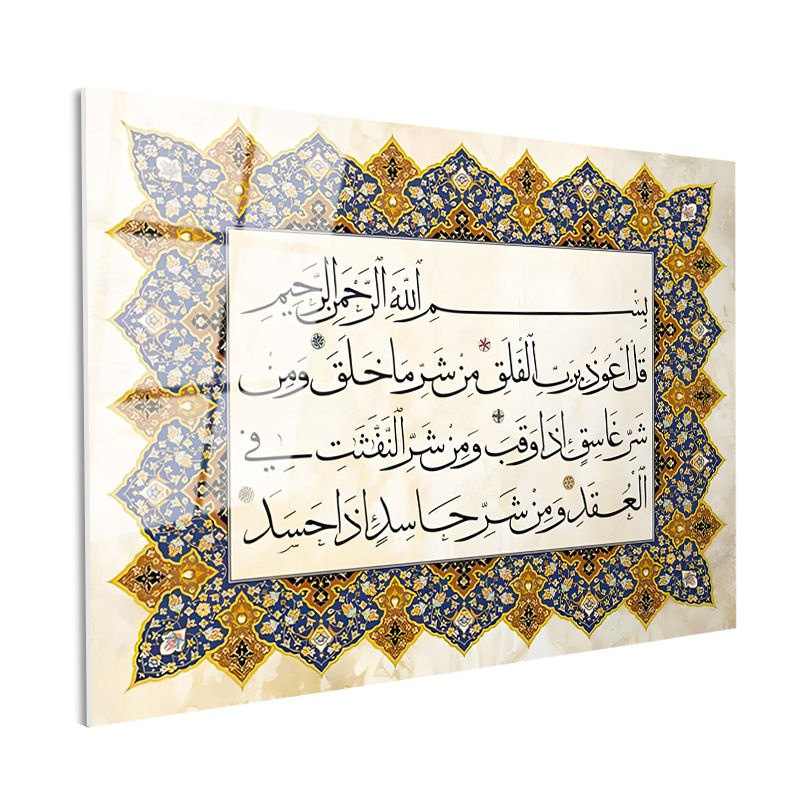 بِسْمِ اللَّهِ الرَّحْمَٰنِ الرَّحِيمِ
قُلْ أَعُوذُ بِرَبِّ الْفَلَقِ مِنْ شَرِّ مَا خَلَقَ وَمِنْ
شَرِّ غَاسِقٍ إِذَا وَقَبَ وَمِنْ شَرِّ النَّفَّٰثَٰتِ فِي
الْعُقَدِ وَمِنْ شَرِّ حَاسِدٍ إِذَا حَسَدَ